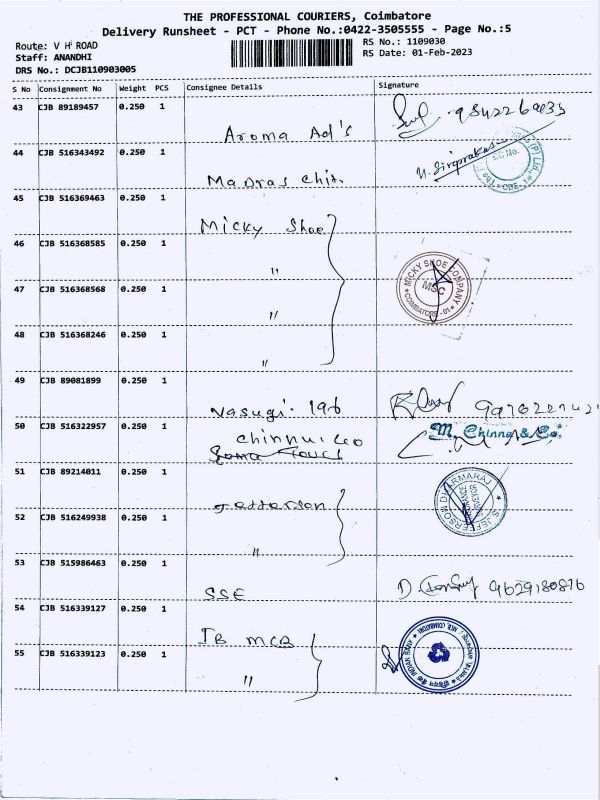 THE PROFESSIONAL COURIERS, Coimbatore
Delivery Runsheet - PCT - Phone No.:0422-3505555 - Page No.:5
Route: V H ROAD
Staff: ANANDHI
DRS No.: DCJB110903005
RS No.: 1109030
RS Date: 01-Feb-2023
S No Consignment No Weight PCS Consignee Details Signature
43 CJB 89189457 0.250 1
Aroma Ad's
44 CJB 516343492 0.250 1
Madras Chit.
45 CJB 516369463 0.250 1
Micky Shoe
46 CJB 516368585 0.250 1
"
MICKY SHOE COMPANY
MSC
COIMBATORE-01
47 CJB 516368568 0.250 1
"
48 CJB 516368246 0.250 1
"
49 CJB 89081899 0.250 1
Vasugi. 196
50 CJB 516322957 0.250 1
M. Chinna & Co.
51 CJB 89214011 0.250 1
Jefferson
S. JEFFERSON DHARMARAJ
52 CJB 516249938 0.250 1
"
53 CJB 515986463 0.250 1
SSE
9629180816
54 CJB 516339127 0.250 1
IB MCB
55 CJB 516339123 0.250 1
"